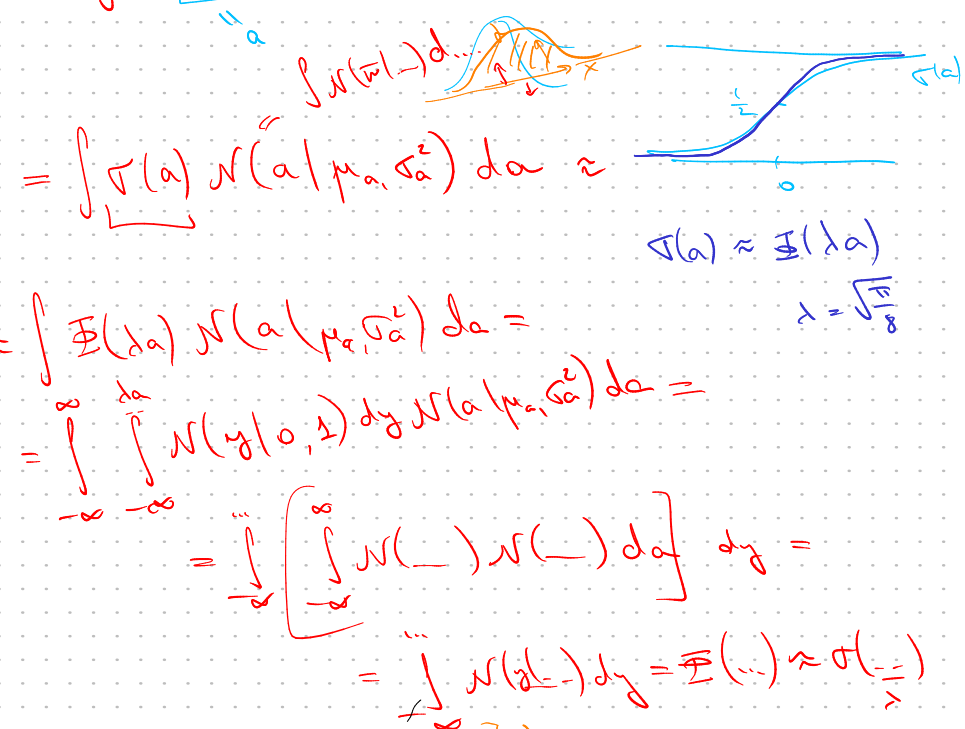 = a
∫ N(w̄|...) d...
x
σ(a)
1/2
0
= ∫ σ(a) N(a | μₐ, σₐ²) da ≈
σ(a) ≈ Φ(λa)
λ = √(π/8)
= ∫ Φ(λa) N(a | μₐ, σₐ²) da =
= ∫_{-∞}^{∞} ∫_{-∞}^{λa} N(y | 0, 1) dy N(a | μₐ, σₐ²) da =
= ∫_{-∞}^{...} [ ∫_{-∞}^{∞} N(—) N(—) da ] dy =
= ∫_{-∞}^{...} N(y|...) dy = Φ(...) ≈ σ(.../λ)